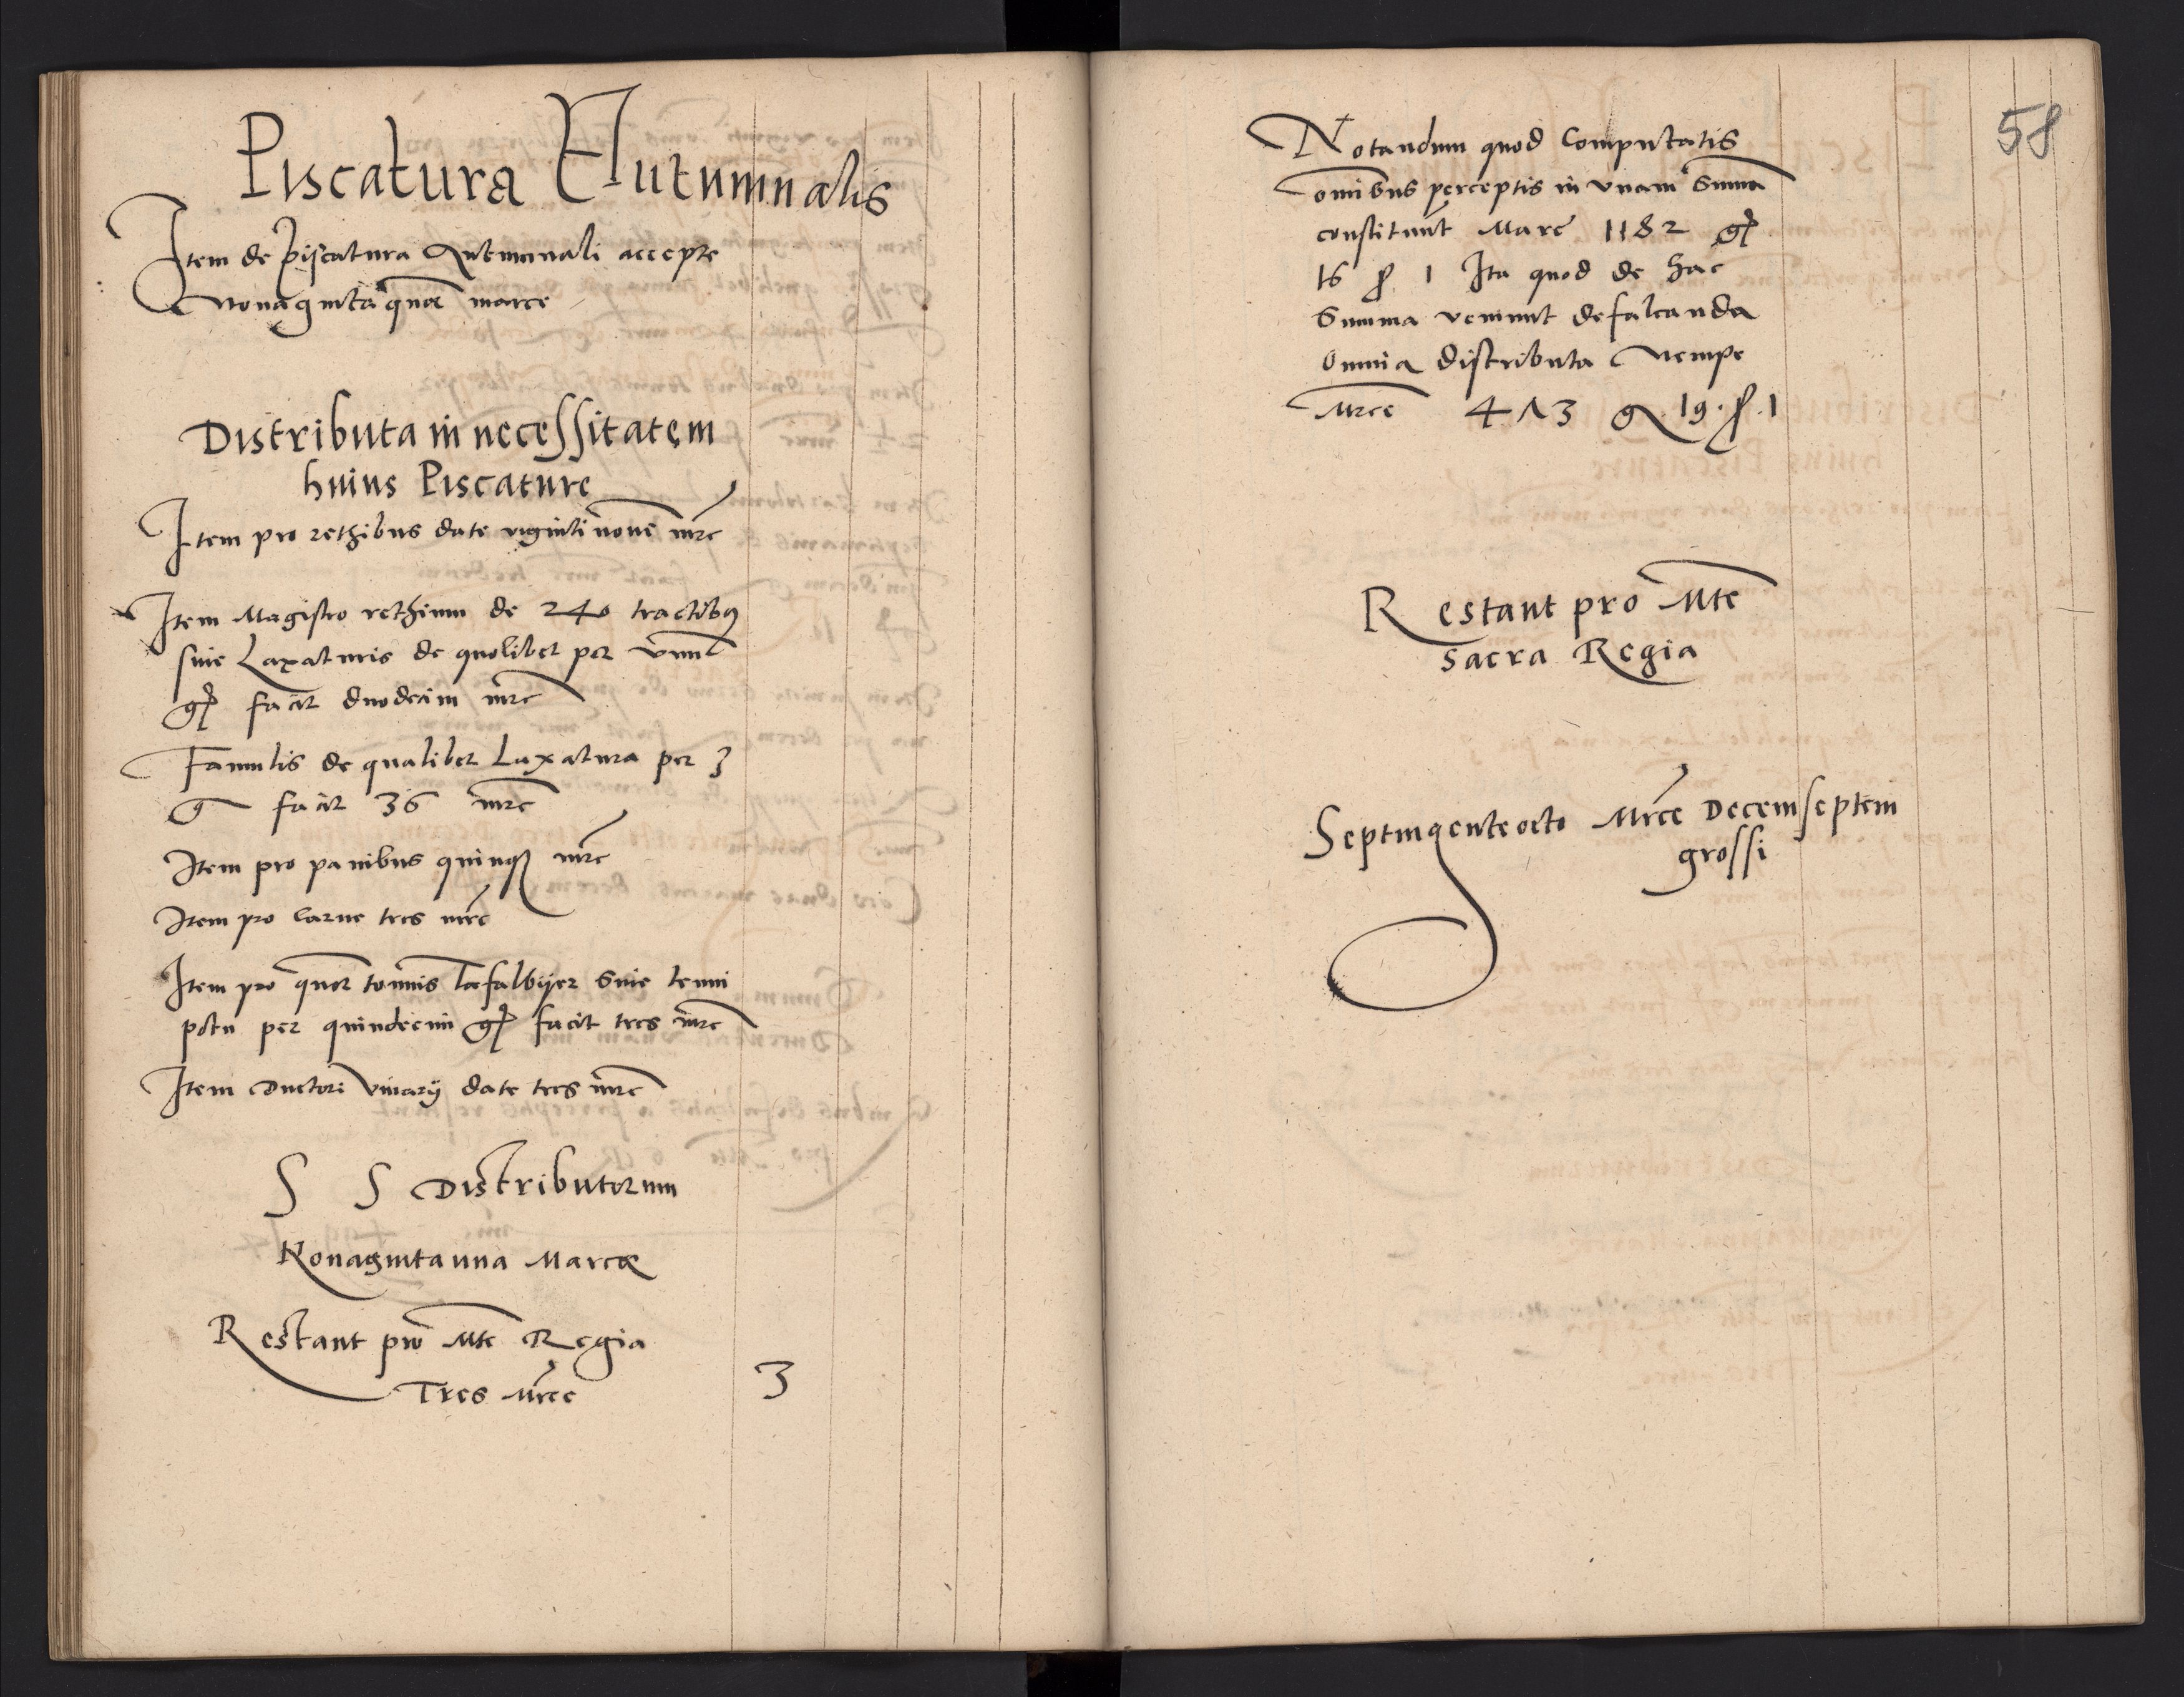 Piscatura Autumnalis
Item de piscatura Autumnali accepte
Nonaginta quor marce
Distributa in necessitatem
huius Piscature
Item pro rethibus date viginti nove mrc
Item Magistro rethium de 240 tractibus
sive Laxaturis de quolibet per unum
gr facit duodecim mrc
Famulis de qualibet Laxatura per 3
g facit 36 mrc
Item pro panibus quinque mrc
Item pro carne tres mrc
Item pro quor tonnis tafalbyer sive tenui
potu per quindecim gr facit tres mrc
Item Ductori vivarij date tres mrc
S S Distributorum
Nonaginta una Marce
Restant pro Mte Regia
Tres Mrce 3
58
Notandum quod Computatis
omibus perceptis in unam Summa
constituunt Marc 1182 gr
16 d 1 Ita quod de hac
Summa veniunt defalcanda
Omnia distributa Nempe
Mrce 473 g 19 d 1
Restant pro Mte
sacra Regia
Septingente octo Mrce Decemseptem
grossi